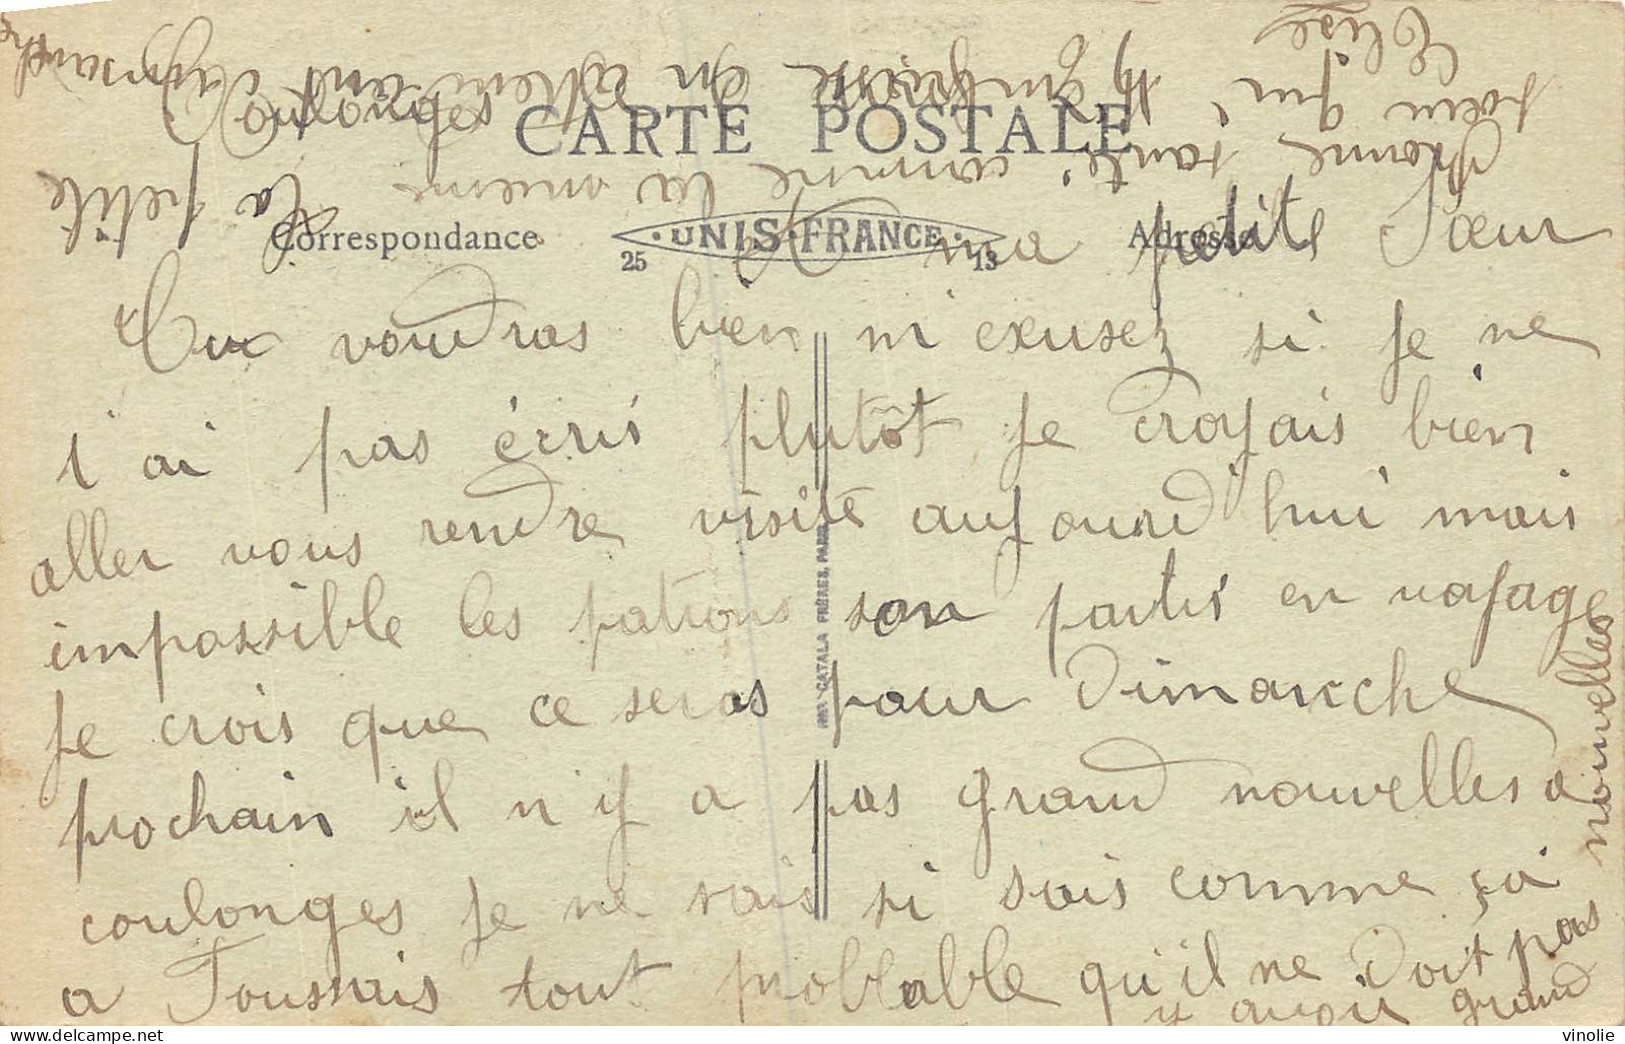 CARTE POSTALE
Correspondance
UNIS-FRANCE
25
13
Adresse
ma petite Sœur
Tu voudras bien m'exusez si je ne
t'ai pas écris plutôt je croyais bien
aller vous rendre visite aujourd'hui mais
impossible les patrons son partis en voyage
je crois que ce seras pour Dimanche
prochain il n'y a pas grand nouvelles a
coulonges je ne sais si sais comme ça
a Toussais tout problable qu'il ne doit pas
y avoir grand
nouvelles
La petite
bonne santé comme la
sœur qui
en attendant
Elise
IMP. CATALA FRÈRES, PARIS
vinolie